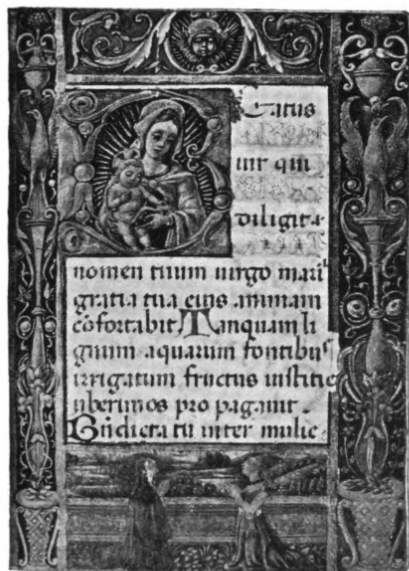 Eatus
uir qui
diligit
nomen tuum uirgo mari
gratia tua eius animam
cōfortabit Tanquam li
gnum aquarum fontibus
irrigatum fructus iustitie
uberimos pro pagauit
Bn̄dicta tu inter mulie